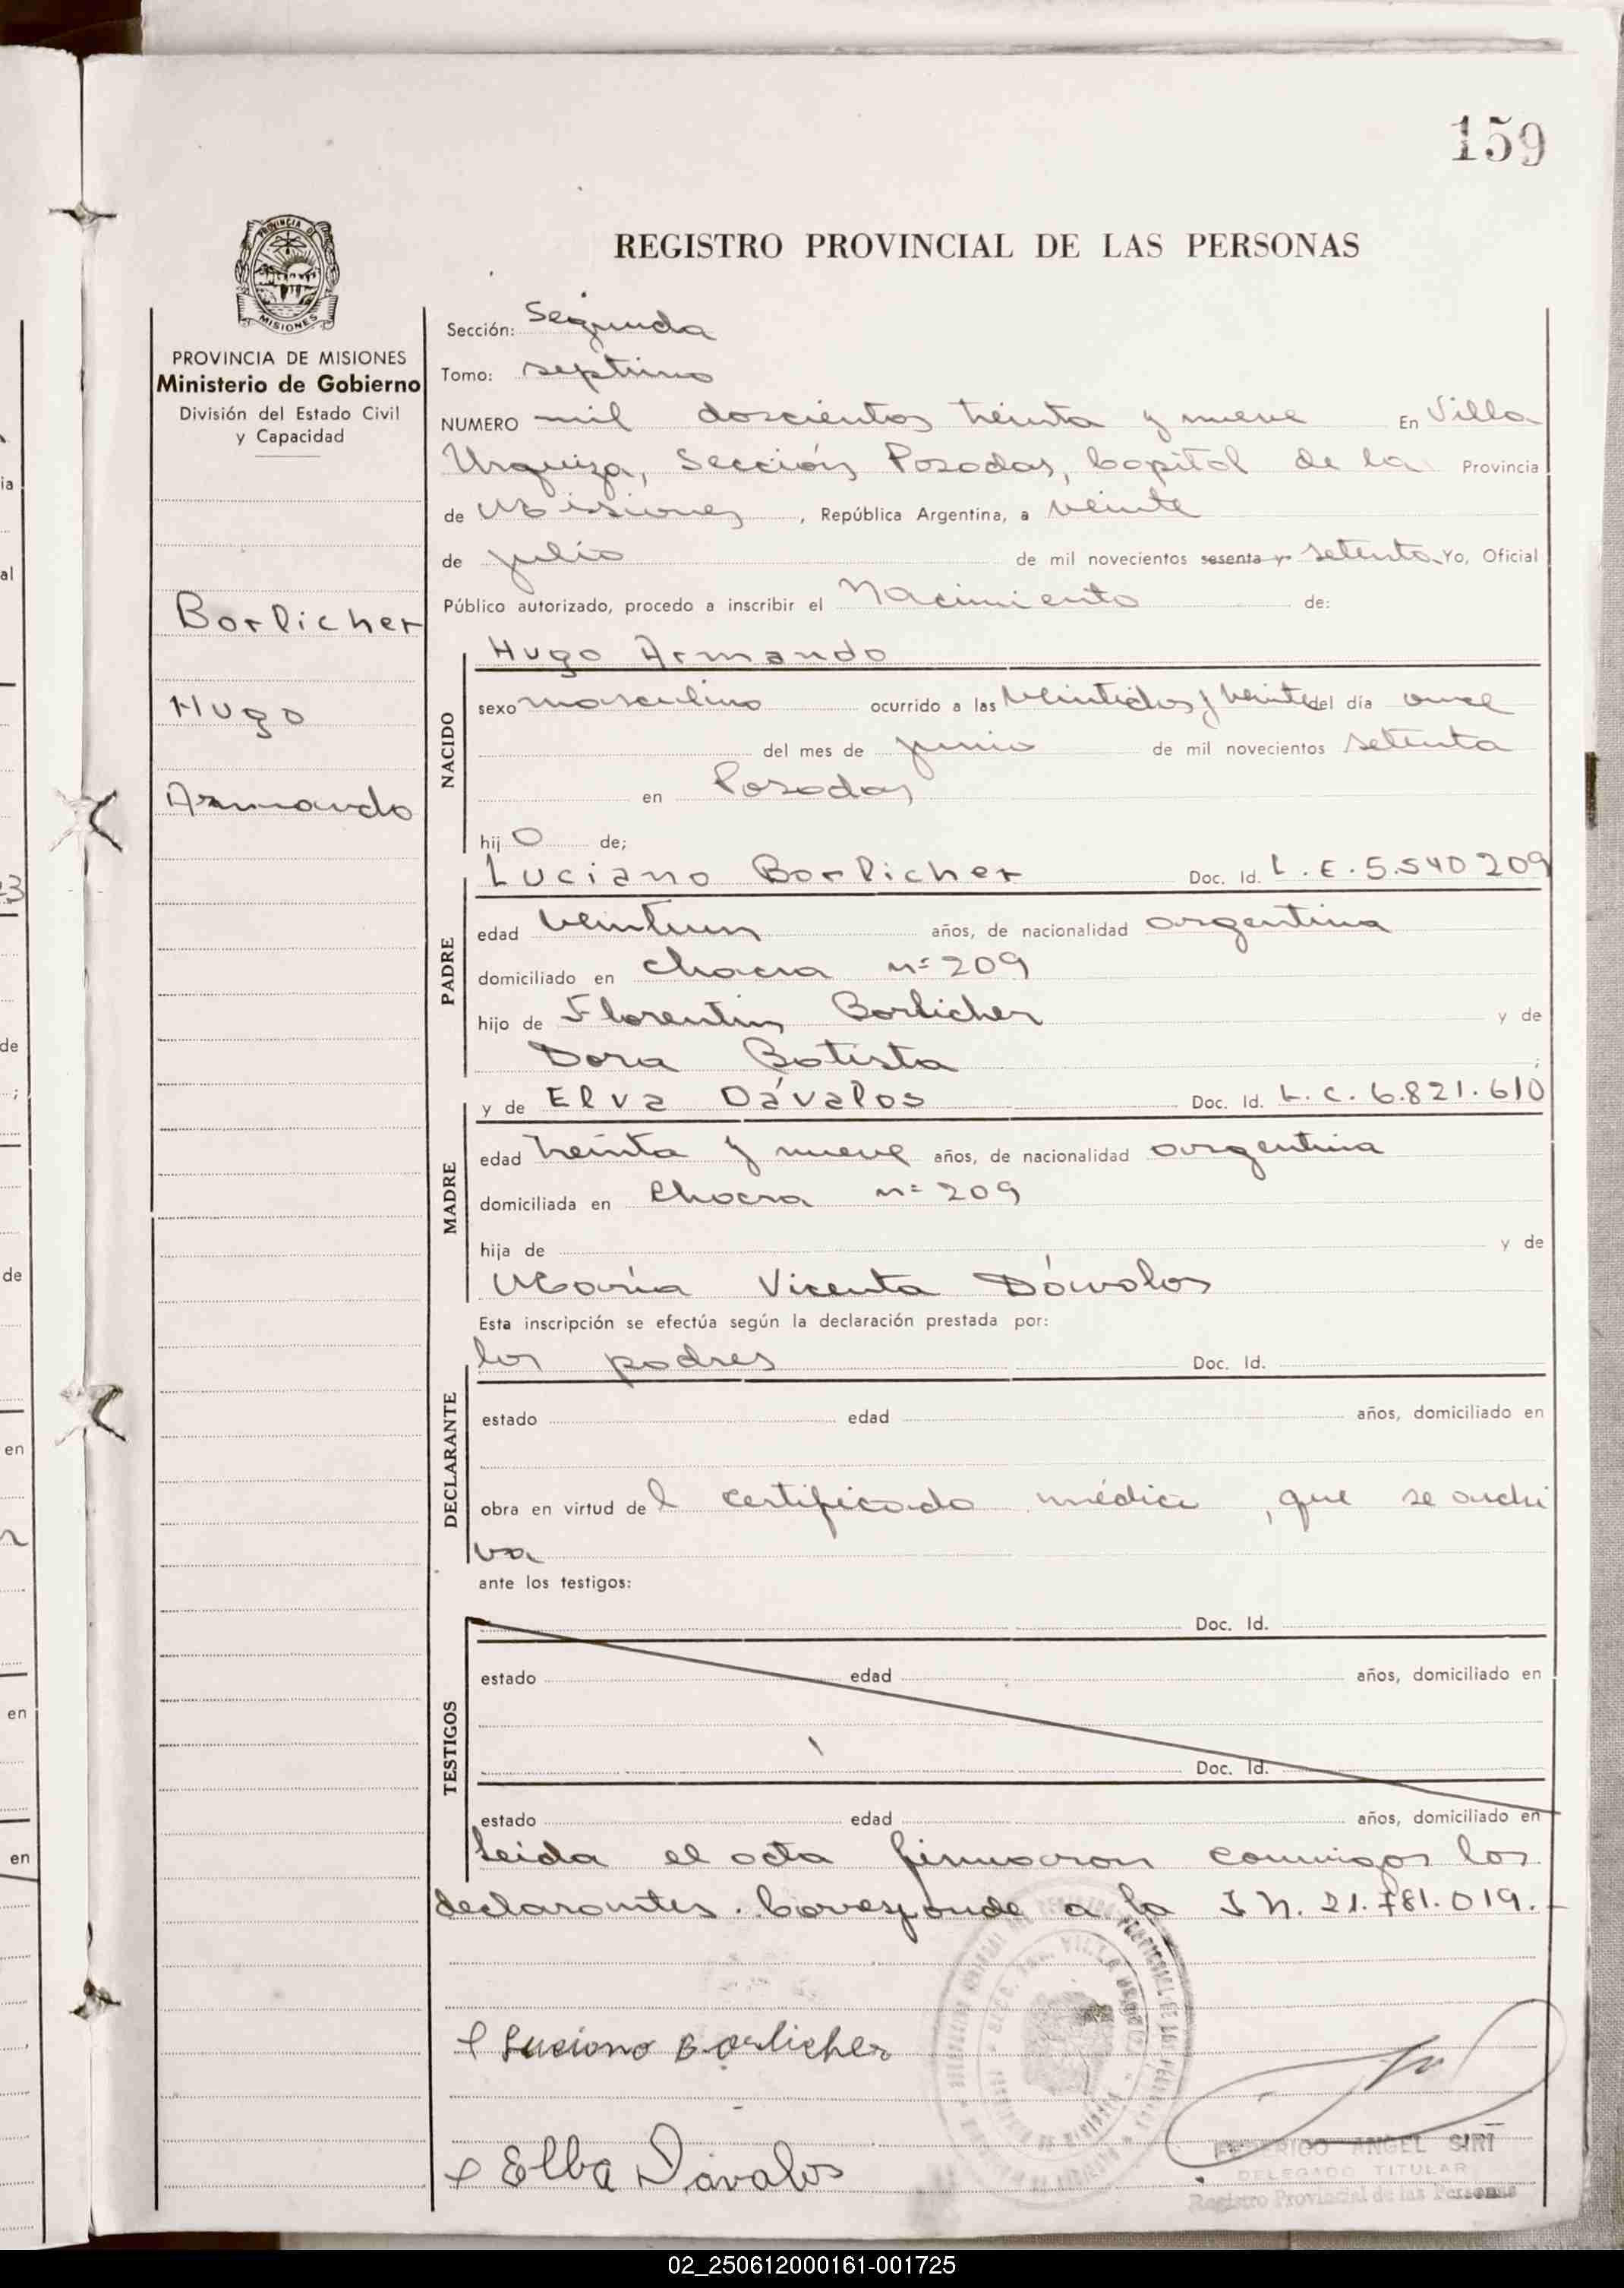 159
REGISTRO PROVINCIAL DE LAS PERSONAS
PROVINCIA DE
MISIONES
PROVINCIA DE MISIONES
Ministerio de Gobierno
División del Estado Civil
y Capacidad
Borlicher
Hugo
Armando
Sección: Segunda
Tomo: septimo
NUMERO mil doscientos treinta y nueve En Villa
Urquiza, Sección Posadas, Capital de la Provincia
de Misiones, República Argentina, a veinte
de julio de mil novecientos sesenta y setenta Yo, Oficial
Público autorizado, procedo a inscribir el Nacimiento de:
Hugo Armando
NACIDO
sexo masculino ocurrido a las veintidos y veinte del día once
del mes de junio de mil novecientos setenta
en Posadas
hijo de;
Luciano Borlicher Doc. Id. L.E.5.540209
PADRE
edad veintiun años, de nacionalidad argentina
domiciliado en chacra nº 209
hijo de Florentin Borlicher y de
Dora Batista ;
y de Elva Dávalos Doc. Id. L.C. 6.821.610
MADRE
edad treinta y nueve años, de nacionalidad argentina
domiciliada en Chacra nº 209
hija de y de
María Vicenta Dávalos
Esta inscripción se efectúa según la declaración prestada por:
los padres Doc. Id.
DECLARANTE
estado edad años, domiciliado en
obra en virtud del certificado médico, que se archi
va
ante los testigos:
Doc. Id.
TESTIGOS
estado edad años, domiciliado en
Doc. Id.
estado edad años, domiciliado en
Leida el acta firmaron conmigo los
declarantes. Corresponde a la I N. 21.781.019.-
Luciano Borlicher
Elba Dávalos
FEDERICO ANGEL SIRI
DELEGADO TITULAR
Registro Provincial de las Personas
02_250612000161-001725